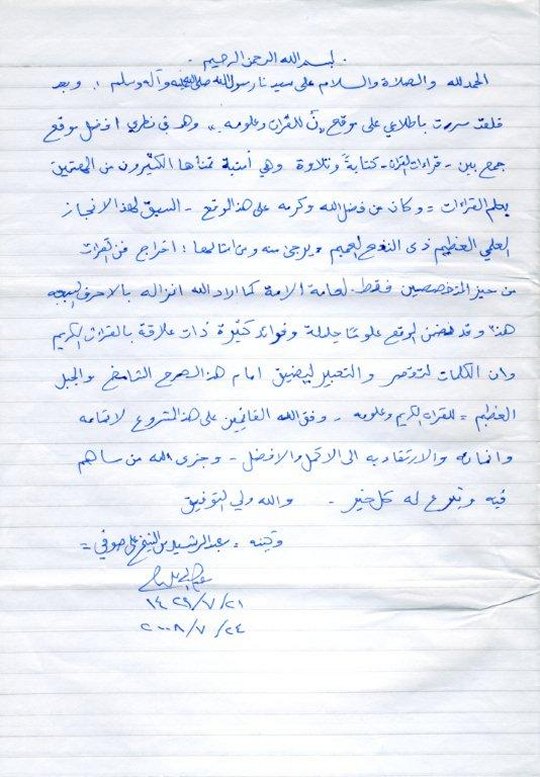 بسم الله الرحمن الرحيم
الحمد لله والصلاة والسلام على سيدنا رسول الله صلى الله عليه وآله وسلم ، وبعد
فلقد سررت باطلاعي على موقع ن للقرآن وعلومه . وهو في نظري افضل موقع
جمع بين - قراءات القرآن - كتابة وتلاوة وهي أمنية تمناها الكثيرون من المهتمين
بعلم القراءات = وكان من فضل الله وكرمه على هذا الموقع - السبق لهذا الانجاز
العلمي العظيم ذى النفع العميم ويرجى منه ومن امثالها ؛ اخراج فن القراءات
من حيز المتخصصين فقط . لعامة الامة كما اراد الله انزاله بالاحرف السبعه
هذا وقد تضمن الموقع علومًا جليلة وفوائد كثيرة ذات علاقة بالقرآن الكريم
وان الكلمات لتقصر والتعبير ليضيق امام هذا الصرح الشامخ والجبل
العظيم = للقرآن الكريم وعلومه - وفق الله القائمين على هذا المشروع لاتمامه
وانمائه والارتقاء به الى الاكمل والافضل - وجزى الله من ساهم
فيه وتبرع له كل خير - والله ولي التوفيق
وكتبه = عبد الرشيد بن الشيخ علي صوفي =
١٤٢٩/٧/٢١
٢٠٠٨/٧/٢٤